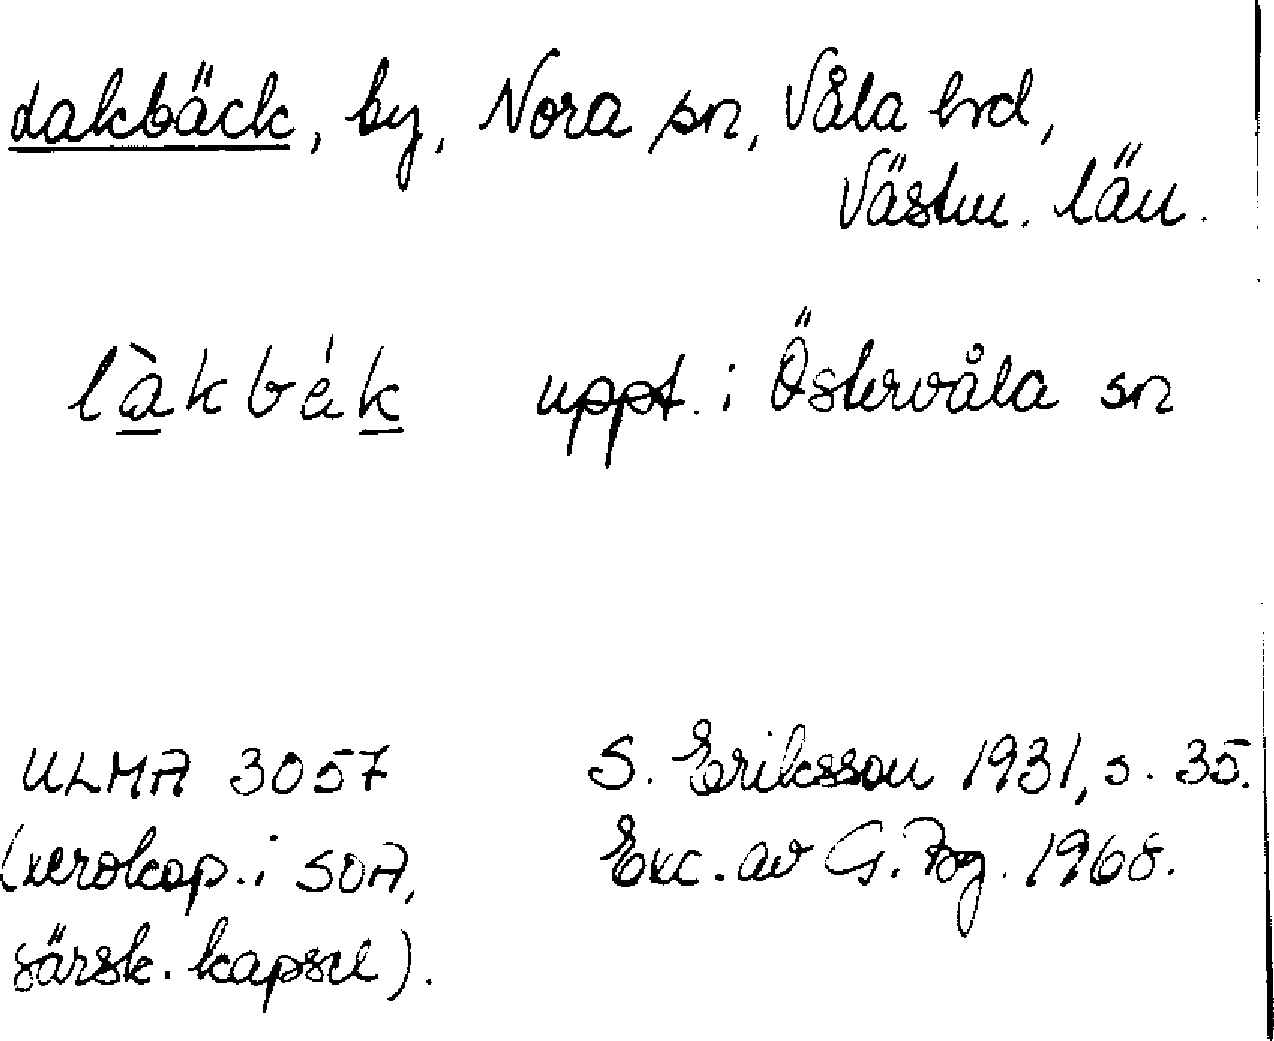 Lakbäck, by, Nora sn, Våla hrd,
Västm. län.
làkbák uppt. i Östervåla sn
ULMA 3057 S. Eriksson 1931, s. 35.
(xerokop. i SOA, Exc. av G. 1968.
särsk. kapsel).